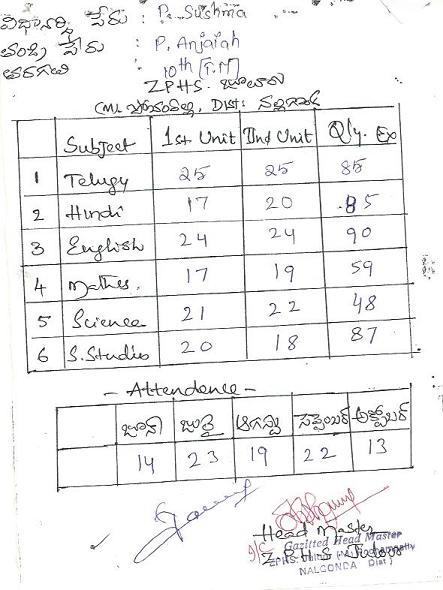 విద్యార్థి పేరు : P. Sushma
తండ్రి పేరు : P. Anjaiah
తరగతి 10th (T.M)
ZPHS. జూలూరు
(M), పోచంపల్లి, Dist: నల్లగొండ
Subject 1st Unit IInd Unit Qly. Ex
1 Telugu 25 25 85
2 Hindi 17 20 85
3 English 24 24 90
4 Maths. 17 19 59
5 Science 21 22 48
6 S. Studies 20 18 87
- Attendence -
జూన్ జులై ఆగస్టు సెప్టెంబర్ అక్టోబర్
14 23 19 22 13
Head Master
I/C Gazitted Head Master
Z.P.H.S
ZPHS. (M) Pochampally
NALGONDA Dist)